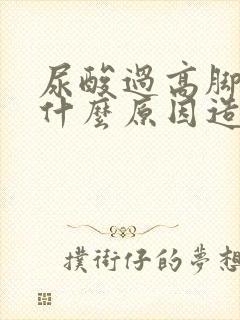 尿酸過高脚
什麼原因造
撲街仔的夢想